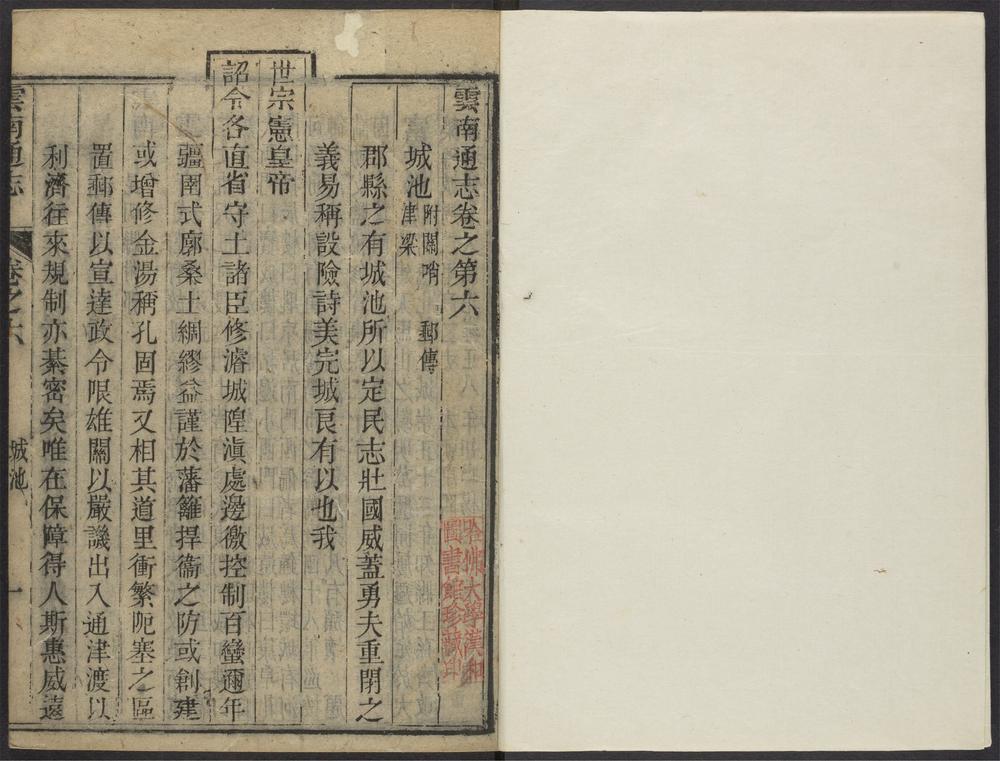 雲南通志卷之第六
城池附關哨 郵傳
津梁
郡縣之有城池所以定民志壯國威蓋勇夫重閉之
義易稱設險詩美完城良有以也我
世宗憲皇帝
詔令各直省守土諸臣修濬城隍滇處邊徼控制百蠻邇年
疆圉式廓桑土綢繆益謹於藩籬捍衞之防或創建
或增修金湯稱孔固焉又相其道里衝繁阨塞之區
置郵傳以宣達政令限雄關以嚴譏出入通津渡以
利濟往來規制亦綦密矣唯在保障得人斯惠威遠
雲南通志
卷之六
城池
一
哈佛大學漢和
圖書館珍藏印